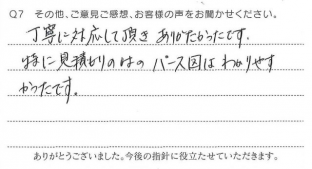 Q7 その他、ご意見ご感想、お客様の声をお聞かせください。
丁寧に対応して頂き ありがたかったです。
特に見積もりのはの パース図は わかりやす
かったです。
ありがとうございました。今後の指針に役立たせていただきます。